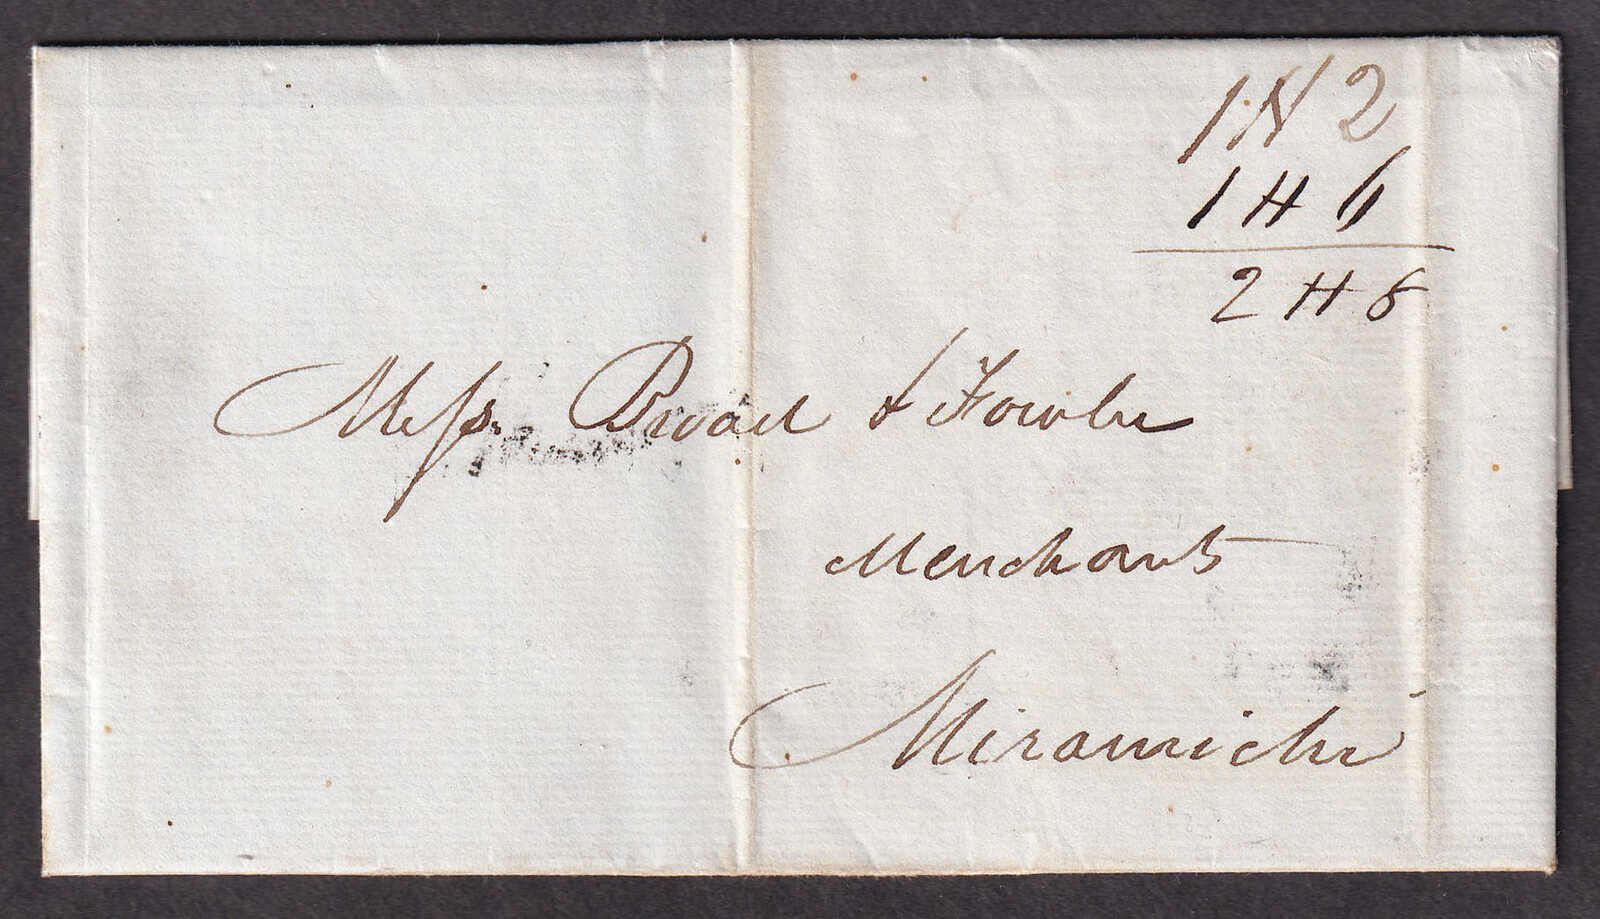 1 N 2
1 H 6
2 H 8
Messrs. Broad & Fowler
Merchants
Miramichi